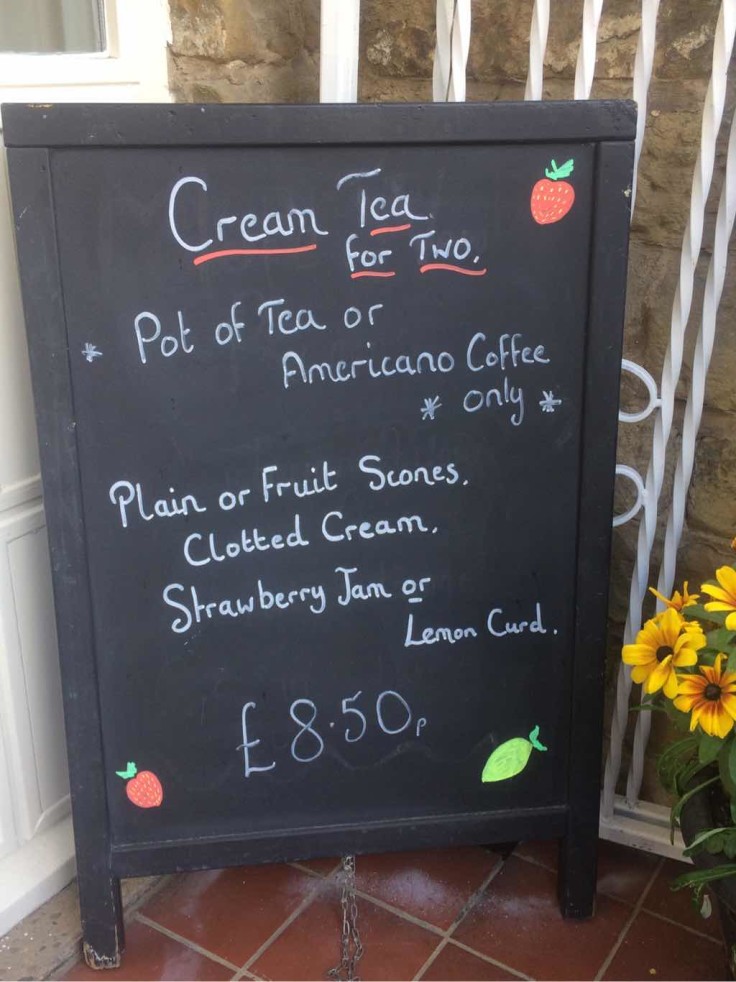 Cream Tea
for Two.
* Pot of Tea or
Americano Coffee
* only *
Plain or Fruit Scones.
Clotted Cream.
Strawberry Jam or
Lemon Curd.
£8.50p